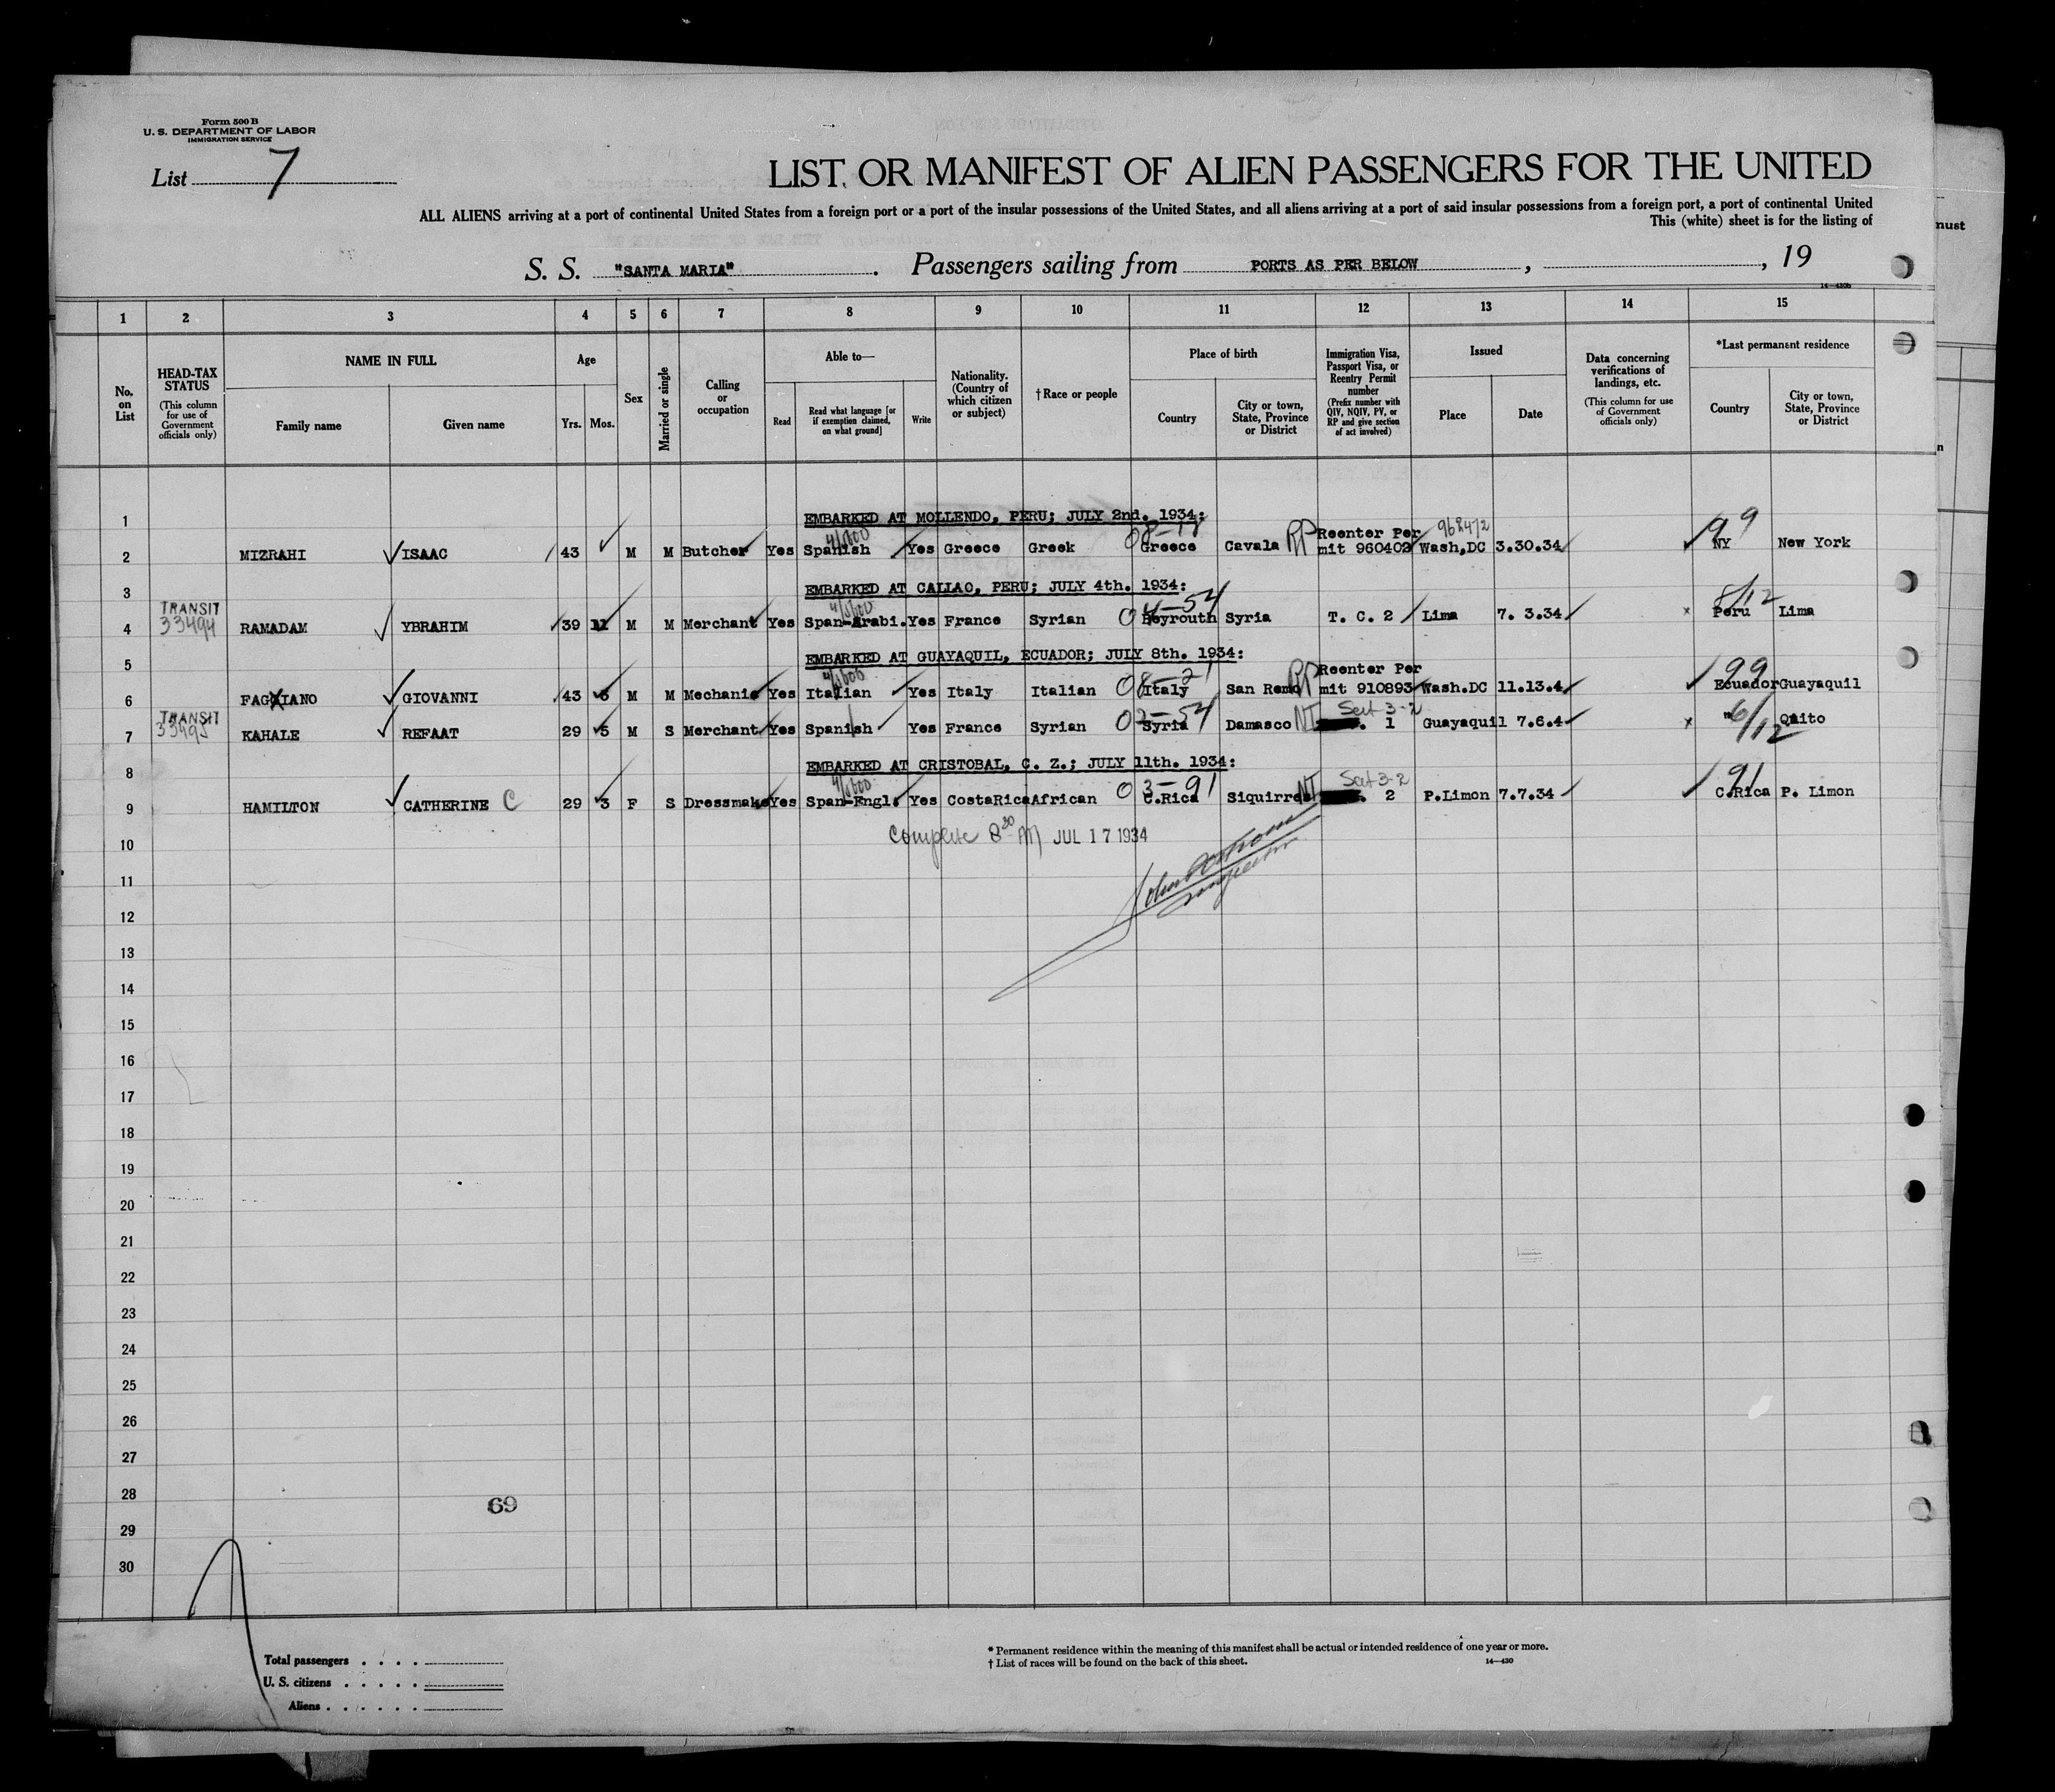 Form 500 B
U. S. DEPARTMENT OF LABOR
IMMIGRATION SERVICE
List 7
LIST OR MANIFEST OF ALIEN PASSENGERS FOR THE UNITED
ALL ALIENS arriving at a port of continental United States from a foreign port or a port of the insular possessions of the United States, and all aliens arriving at a port of said insular possessions from a foreign port, a port of continental United
This (white) sheet is for the listing of
nust
S. S. "SANTA MARIA". Passengers sailing from PORTS AS PER BELOW , , 19
14—430b
1 2 3 4 5 6 7 8 9 10 11 12 13 14 15
No. on List
HEAD-TAX STATUS (This column for use of Government officials only)
NAME IN FULL Family name Given name
Age Yrs. Mos.
Sex
Married or single
Calling or occupation
Able to— Read Read what language [or if exemption claimed, on what ground] Write
Nationality. (Country of which citizen or subject)
† Race or people
Place of birth Country City or town, State, Province or District
Immigration Visa, Passport Visa, or Reentry Permit number (Prefix number with QIV, NQIV, PV, or RP and give section of act involved)
Issued Place Date
Data concerning verifications of landings, etc. (This column for use of Government officials only)
*Last permanent residence Country City or town, State, Province or District
1 EMBARKED AT MOLLENDO, PERU; JULY 2nd. 1934:
2 MIZRAHI ISAAC 43 M M Butcher Yes Spanish Yes Greece Greek 08-18 Greece Cavala RP Reenter Per mit 960402 968472 Wash,DC 3.30.34 99 NY New York
3 EMBARKED AT CALLAO, PERU; JULY 4th. 1934:
TRANSIT
33494
4 RAMADAM YBRAHIM 39 11 M M Merchant Yes Span-Arabi. Yes France Syrian Beyrouth Syria T. C. 2 Lima 7. 3.34 x 8/12 Peru Lima
5 EMBARKED AT GUAYAQUIL, ECUADOR; JULY 8th. 1934:
6 FAGXIANO GIOVANNI 43 5 M M Mechanic Yes Italian Yes Italy Italian 08-21 Italy San Remo RP Reenter Per mit 910893 Wash.DC 11.13.4 99 Ecuador Guayaquil
TRANSIT
33495
7 KAHALE REFAAT 29 5 M S Merchant Yes Spanish Yes France Syrian 02-54 Syria Damasco NI Sect 3-2 . 1 Guayaquil 7.6.4 x " 6/12 Quito
8 EMBARKED AT CRISTOBAL, C. Z.; JULY 11th. 1934:
9 HAMILTON CATHERINE C 29 3 F S Dressmake Yes Span-Engl. Yes CostaRica African 03-91 C.Rica Siquirres NI Sect 3-2 . 2 P.Limon 7.7.34 91 C.Rica P. Limon
10 Complete 8 30 AM JUL 17 1934
11
12
13
14
15
16
17
18
19
20
21
22
23
24
25
26
27
28
69
29
30
Total passengers . . . .
U. S. citizens . . . . .
Aliens . . . . . .
* Permanent residence within the meaning of this manifest shall be actual or intended residence of one year or more.
† List of races will be found on the back of this sheet.
14—430